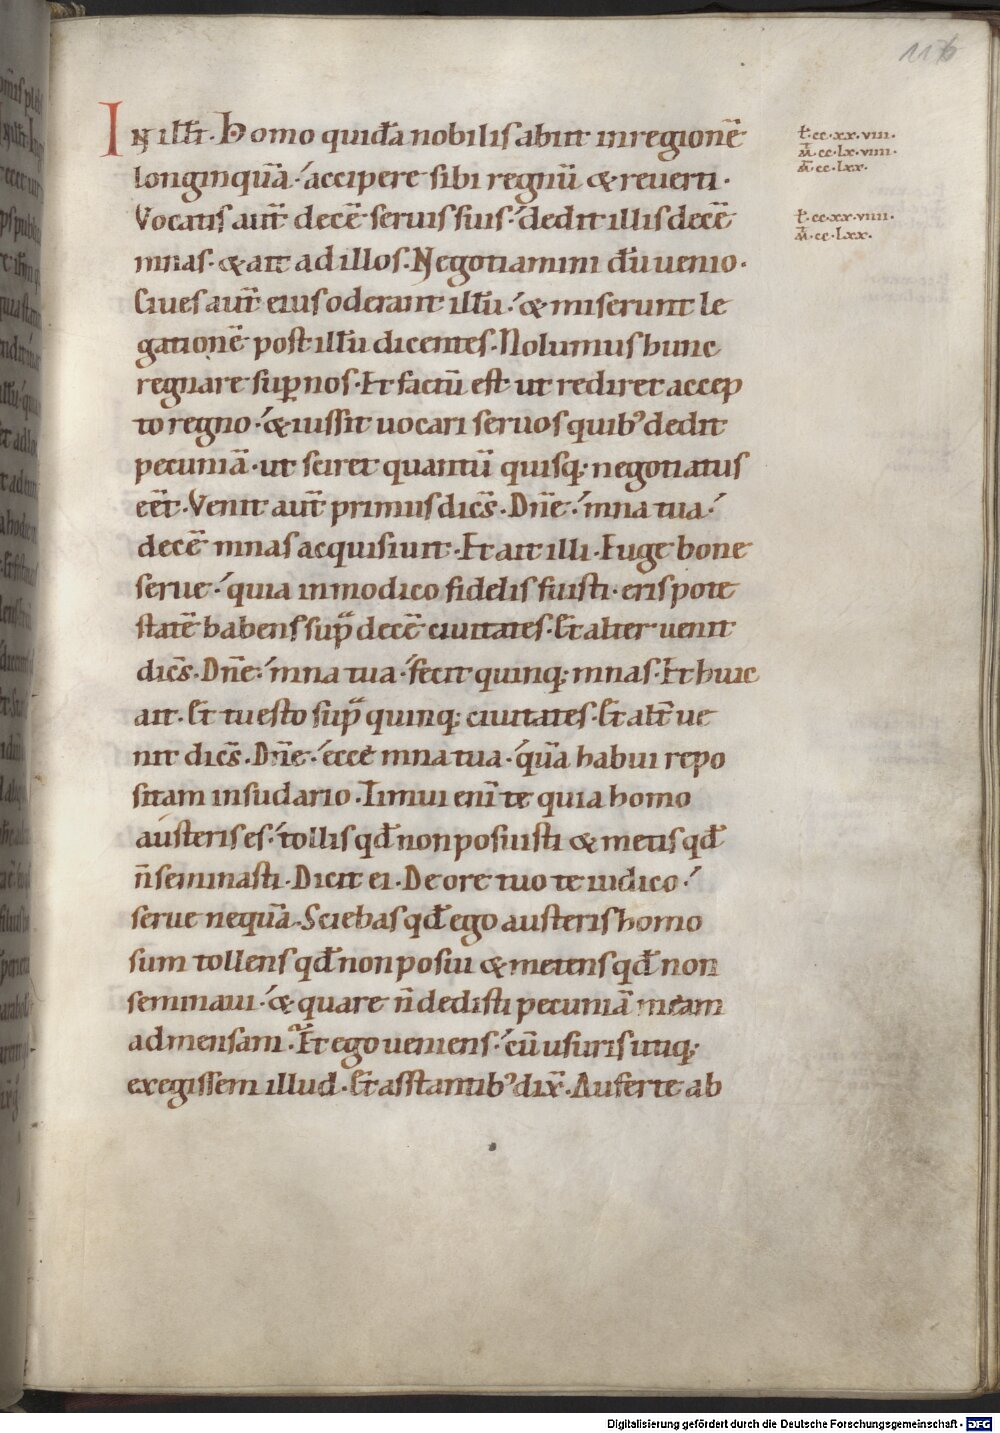 116
IN illī t̄. Homo quidā nobilis abiit in regionē
longinquā. accipere sibi regnū & reuerti.
Vocatis aut̄ decē seruis suis. dedit illis decē
mnas. & ait ad illos. Negotiamini dū uenio.
Ciues aut̄ eius oderant illū. & miserunt le
gationē post illū dicentes. Nolumus hunc
regnare sup nos. Et factū est ut rediret accep
to regno. & iussit uocari seruos quib' dedit
pecuniā. ut sciret quantū quisq; negotiatus
eēt. Venit aut̄ primus dicēs. Dn̄e. mna tua.
decē mnas acquisiuit. Et ait illi. Euge bone
serue. quia in modico fidelis fuisti. eris pote
statē habens sup decē ciuitates. Et alter uenit
dicēs. Dn̄e. mna tua. fecit quinq; mnas. Et huic
ait. Et tu esto sup quinq; ciuitates. Et alt̄ ue
nit dicēs. Dn̄e. ecce mna tua. quā habui repo
sitam in sudario. Timui eni te quia homo
austeris es. tollis qd̄ non posuisti & metis qd̄
n̄ seminasti. Dicit ei. De ore tuo te iudico.
serue nequā. Sciebas qd̄ ego austeris homo
sum tollens qd̄ non posui & metens qd̄ non
seminaui. & quare n̄ dedisti pecuniā meam
ad mensam. Et ego ueniens. cū usuris utiq;
exegissem illud. Et asstantib' dix̄. Auferte ab
t̄. cc. xx. viii.
M̄. cc. Lx. viiii.
M̄. cc. Lxx.
t̄. cc. xx. viiii.
M̄. cc. Lxx.
Digitalisierung gefördert durch die Deutsche Forschungsgemeinschaft - DFG